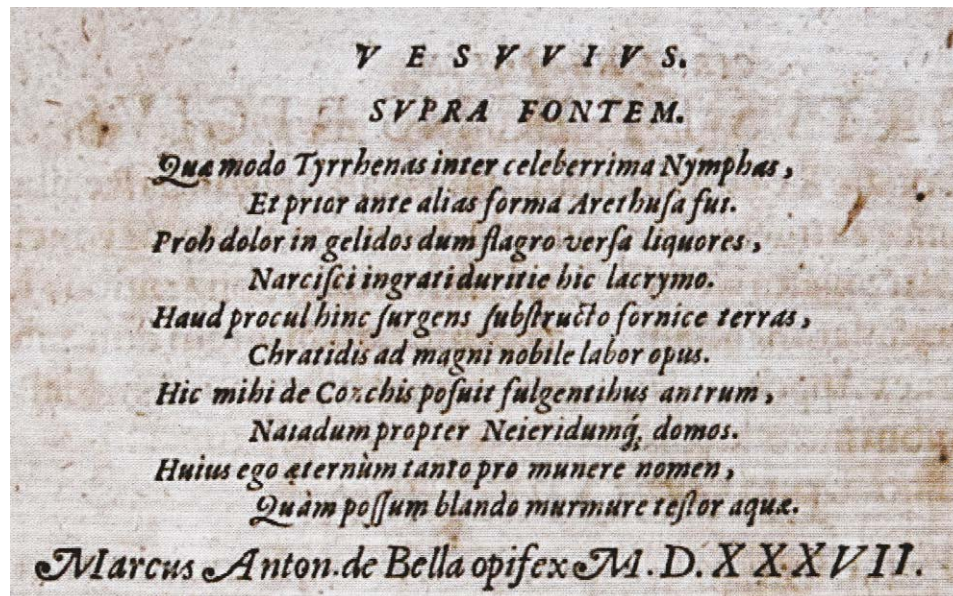 V E S V V I V S.
SVPRA FONTEM.
Quæ modo Tyrrhenas inter celeberrima Nymphas,
Et prior ante alias forma Arethuſa fui.
Proh dolor in gelidos dum flagro verſa liquores,
Narciſci ingrati duritie hic lacrymo.
Haud procul hinc ſurgens ſubſtructo fornice terras,
Chratidis ad magni nobile labor opus.
Hic mihi de Conchis poſuit fulgentibus antrum,
Naiadum propter Neieridumq́; domos.
Huius ego æternùm tanto pro munere nomen,
Quàm poſſum blando murmure teſtor aquæ.
Marcus Anton. de Bella opifex M. D. XXXVII.